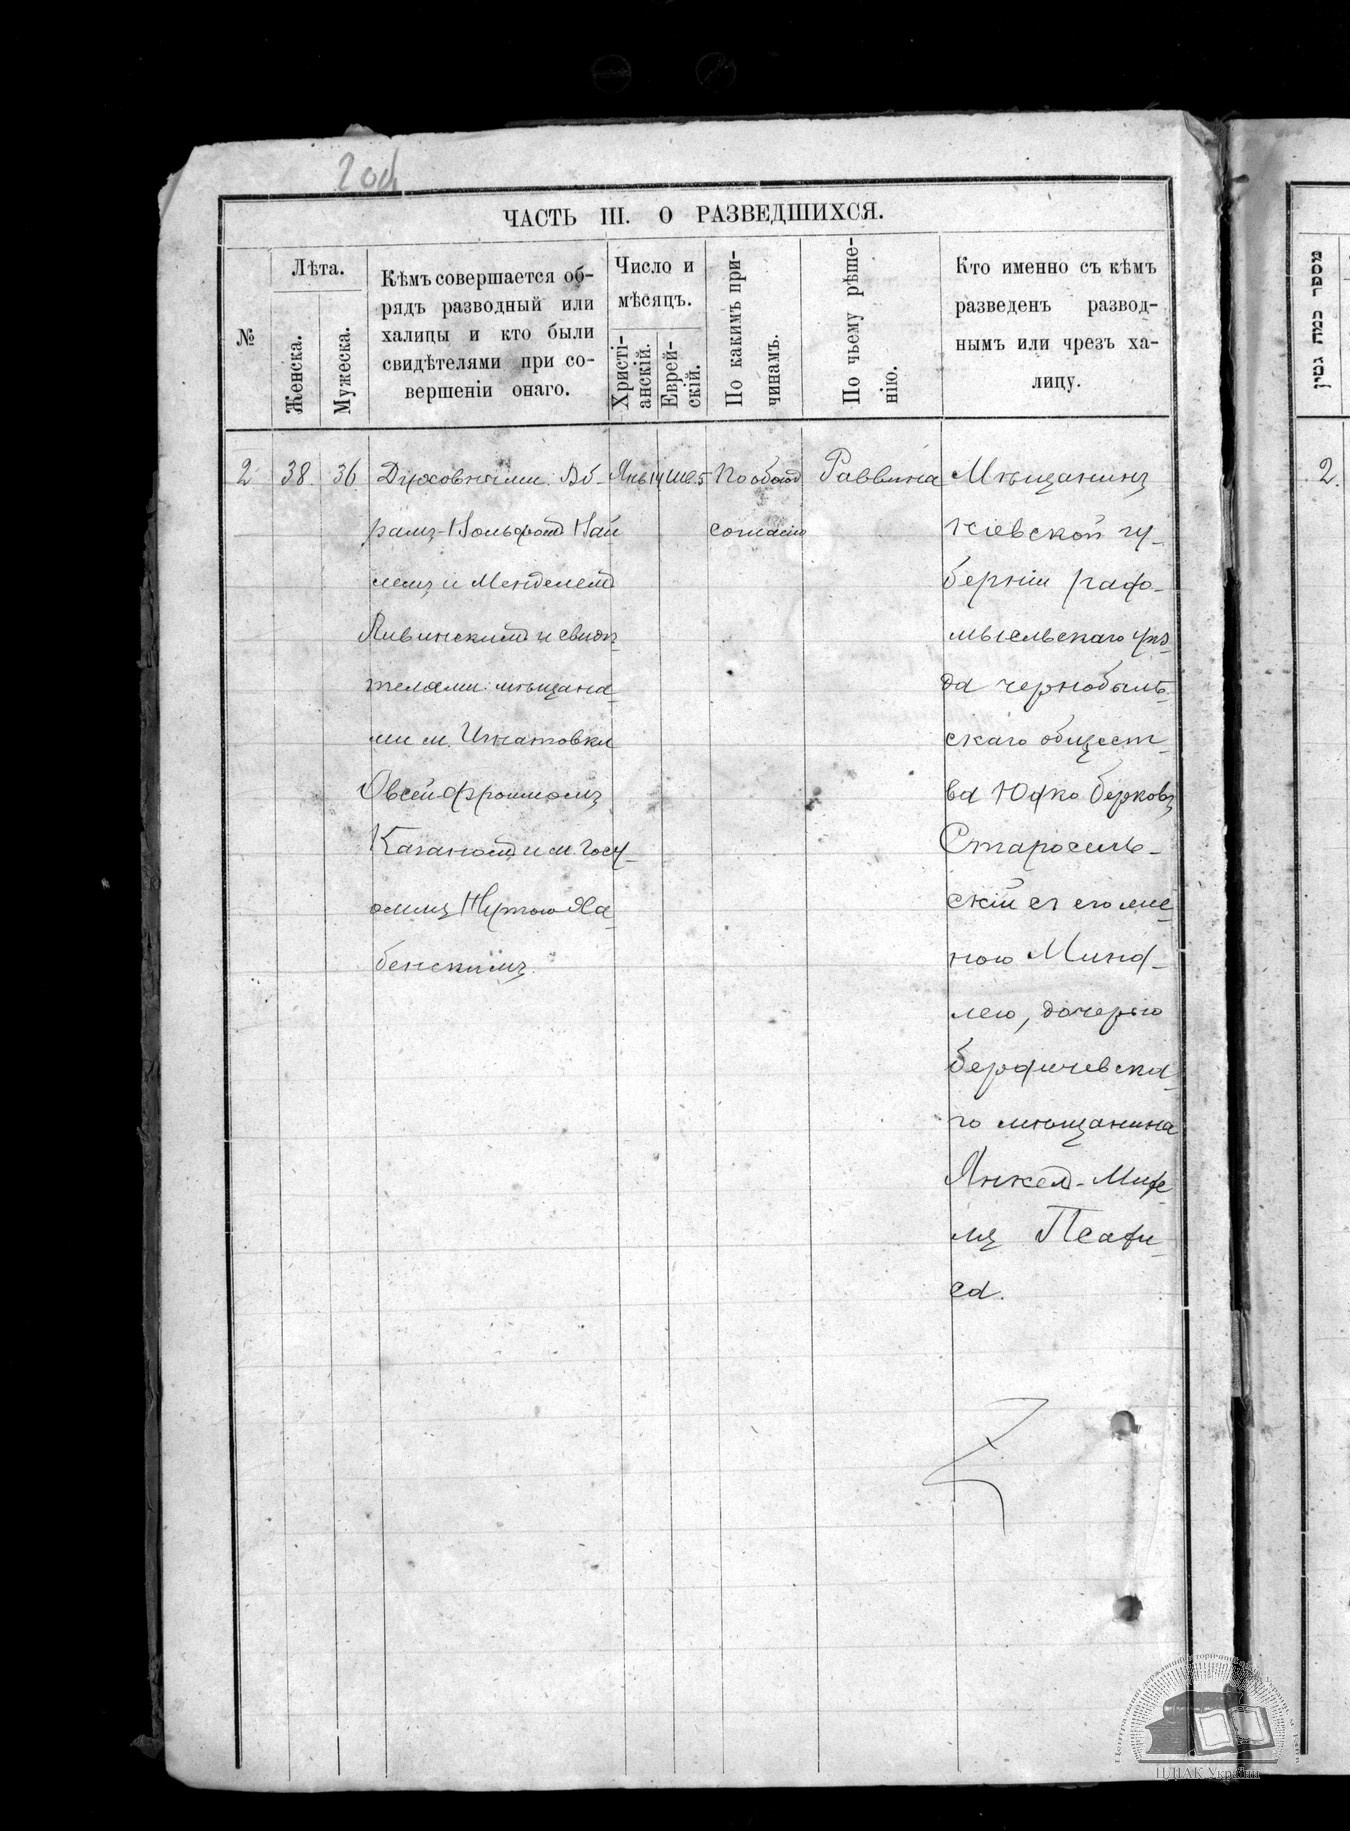 204
ЧАСТЬ III. О РАЗВЕДШИХСЯ.
№
Лѣта.
Женска.
Мужеска.
Кѣмъ совершается об-
рядъ разводный или
халицы и кто были
свидѣтелями при со-
вершеніи онаго.
Число и
мѣсяцъ.
Христі-
анскій.
Еврей-
скій.
По какимъ при-
чинамъ.
По чьему рѣше-
нію.
Кто именно съ кѣмъ
разведенъ развод-
нымъ или чрезъ ха-
лицу.
2
38.
36
Духовными: Аб-
рамъ-Вольфомъ
и Менделемъ
и свидѣ-
телями: мѣщана-
ми м. Игнатовки
Овсей-Фроимомъ
Каганомъ и м.
бенскимъ.
По обоюд
согласію
Раввина
Мѣщанинъ
Кіевской гу-
берніи радо-
мысльскаго уѣз-
да чернобыль-
скаго общест-
ва Юдко берковъ
Старосель-
скій съ его же-
ною Минд-
лею, дочерью
бердичевска-
го мѣщанина
Янкель-Мее-
ра
са.
מספר כמה גטין
2.
ЦДІАК України